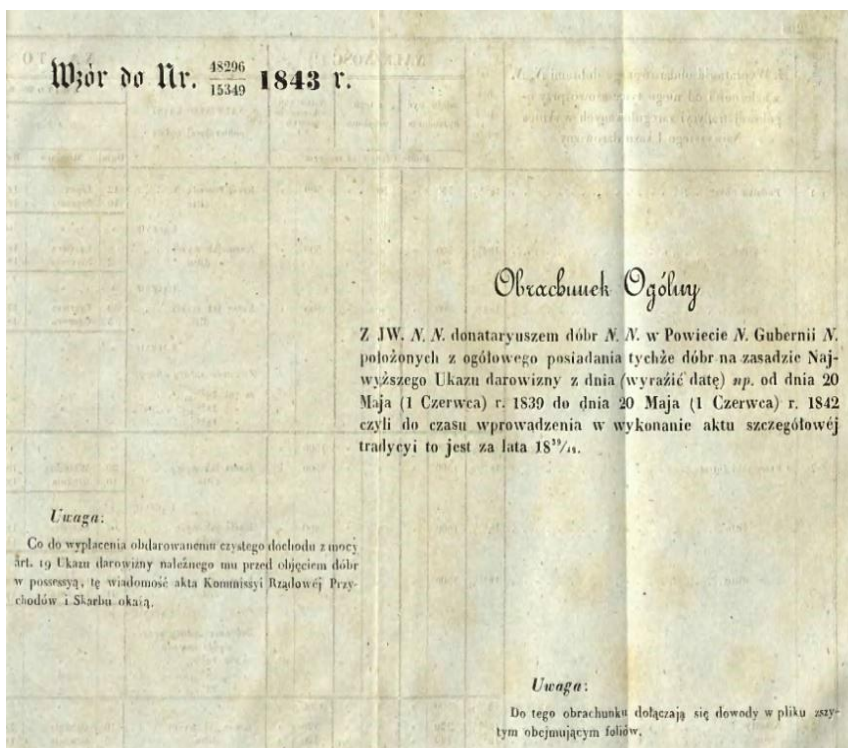 Wzór do Nr. 48296/15349 1843 r.
Obrachunek Ogólny
Z JW. N. N. donataryuszem dóbr N. N. w Powiecie N. Gubernii N.
położonych z ogółowego posiadania tychże dóbr na zasadzie Naj-
wyższego Ukazu darowizny z dnia (wyrazić datę) np. od dnia 20
Maja (1 Czerwca) r. 1839 do dnia 20 Maja (1 Czerwca) r. 1842
czyli do czasu wprowadzenia w wykonanie aktu szczegółowéj
tradycyi to jest za lata
Uwaga:
Co do wypłacenia obdarowanemu czystego dochodu z mocy
art. 19 Ukazu darowizny należnego mu przed objęciem dóbr
w possessyą, tę wiadomość akta Kommissyi Rządowéj Przy-
chodów i Skarbu okażą.
Uwaga:
Do tego obrachunku dołączają się dowody w pliku zszy-
tym obejmującym foliów.